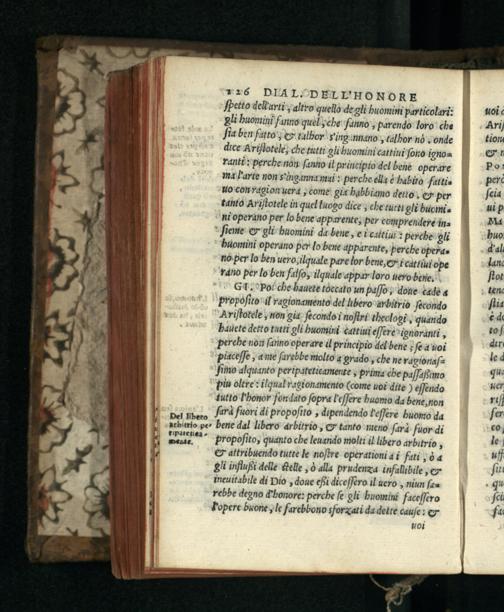 226 DIAL. DELL'HONORE
spetto dell'arti, altro quello de gli huomini particolari:
gli huomini fanno quel, che fanno, parendo loro che
sia ben fatto, & talhor s'ingannano, talhor nò. onde
dice Aristotele, che tutti gli huomini cattiui sono igno=
ranti: perche non fanno il principio del bene operare
ma l'arte non s'inganna mai: perche ella è habito fatti=
uo con ragion uera, come gia habbiamo detto. & per
tanto Aristotele in quel luogo dice, che tutti gli huomi=
ni operano per lo bene apparente, per comprendere in=
sieme & gli huomini da bene, e i cattiui: perche gli
huomini operano per lo bene apparente, perche opera=
no per lo ben uero, ilquale pare lor bene, & i cattiui ope
rano per lo ben falso, ilquale appar loro uero bene.
GI. Poi che hauete toccato un passo, doue cade a
proposito il ragionamento del libero arbitrio secondo
Aristotele, non gia secondo i nostri theologi, quando
hauete detto tutti gli huomini cattiui essere ignoranti,
perche non sanno operare il principio del bene; se a uoi
piacesse, a me sarebbe molto a grado, che ne ragionas=
simo alquanto peripateticamente, prima che passassimo
piu oltre: ilqual ragionamento (come uoi dite) essendo
tutto l'honor fondato sopra l'essere huomo da bene, non
sarà fuori di proposito, dipendendo l'essere huomo da
bene dal libero arbitrio, & tanto meno sarà fuor di
proposito, quanto che leuando molti il libero arbitrio,
& attribuendo tutte le nostre operationi a i fati, ò a
gli influssi delle stelle, ò alla prudenza infallibile, &
ineuitabile di Dio, doue essi dicessero il uero, niun sa=
rebbe degno d'honore: perche se gli huomini facessero
l'opere buone, le sarebbono sforzati da dette cause: &
uoi
Del libero
arbitrio pe
ripatetica=
mente.